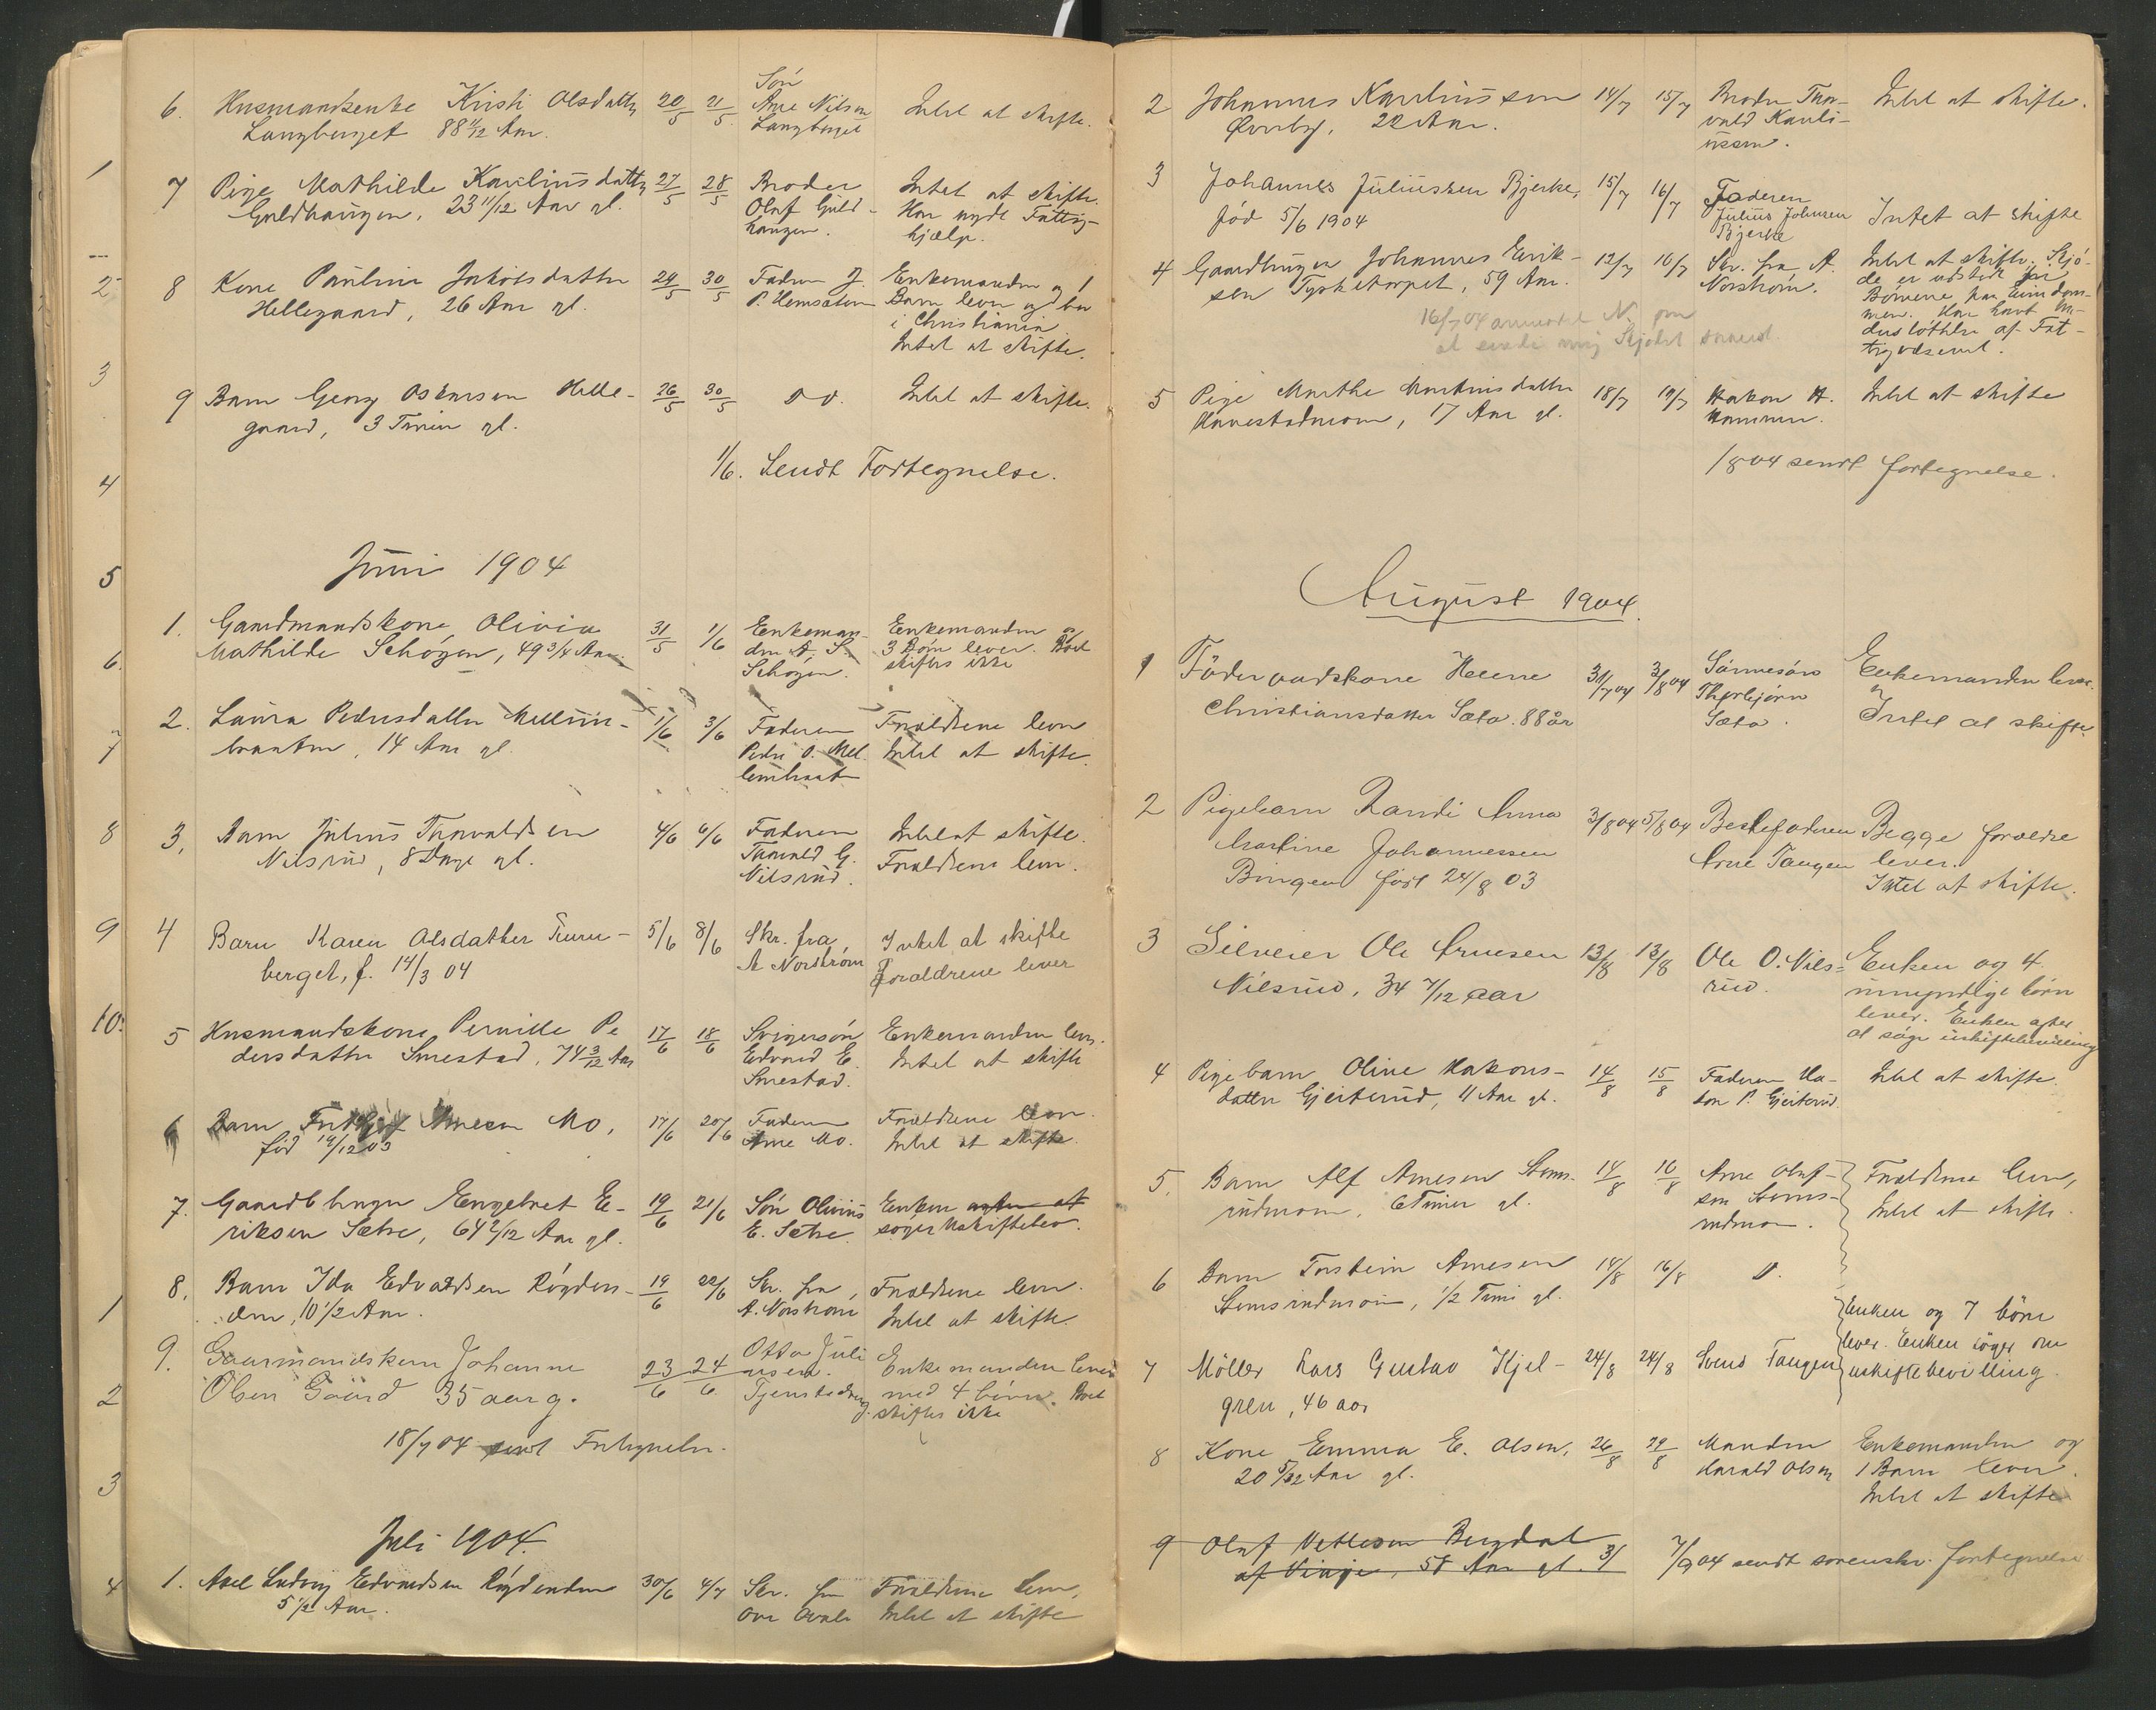 6. Husmandsenke Kristi Olsdatter 20/5 21/5 Søn Arne Nilsen Langberget Intet at skifte.
Langberget 88 11/12 Aar.
7 Pige Mathilde Karlinsdatter 27/5 28/5 Broder Olaf Guldhaugen. Intet at skifte.
Guldhaugen, 23 11/12 Aar gl. Har nydt Fattig-
hjælp.
8 Kone Pauline Jakobsdatter 24/5 30/5 Faderen J. Enkemanden og 1
Hellegaard, 26 Aar gl. P. Barn lever og bor
i Christiania
Intet at skifte.
9 Barn Georg Oskarsen Helle- 26/5 30/5 D o. Intet at skifte.
gaard, 3 Timer gl.
1/6. Sendt Fortegnelse.
Juni 1904
1. Gaardmandskone Olivia 31/5 1/6 Enkeman- Enkemanden og
Mathilde Schøgen, 49 3/4 Aar. den A. S. 3 Børn lever. Boet
Schøgen. skiftes ikke
2. Laura Pedersdatter Mellem- 1/6 3/6 Faderen Forældrene lever
braaten, 14 Aar gl. Peder O. Mel- Intet at skifte.
lembraat
3. Barn Julius Thorvaldsen 4/6 6/6 Faderen Intet at skifte.
Nilsrud, 8 Dage gl. Thorvald G. Forældrene lever.
Nilsrud.
4 Barn Karen Olsdatter Furu- 5/6 8/6 Skr. fra Intet at skifte
berget, f. 14/3 04 A Norstrøm Forældrene lever
5 Husmandskone Pernille Pe 17/6 18/6 Svigersøn Enkemanden lever.
dersdatter Smestad, 74 3/12 Aar Edvard E. Intet at skifte
Smestad.
6 Barn Fridtjof Arnesen Mo, 17/6 20/6 Faderen Forældrene lever.
fød 14/12 03 Arne Mo. Intet at skifte.
7. Gaardbruger Engebret E- 19/6 21/6 Søn Olivius Enken agter at
riksen Sætre, 64 2/12 Aar gl. E. Sætre. søger Uskiftebev.
8. Barn Ida Edvardsen Røgden- 19/6 22/6 Skr. fra Forældrene lever.
den, 10 1/2 Aar. A. Norstrøm Intet at skifte.
9. Gaarmandskon Johanne 23/6 24/6 Otto Juli Enkemanden lever
Olsen Gaard 35 aar g. usen. med 4 børn. Boet
skiftes ikke
18/7 04 sendt Fortegnelse.
Juli 1904.
1. Axel Ludvig Edvardsen Røgdenden 30/6 4/7 Skr. fra Forældrene lever,
5 1/2 Aar. Intet at skifte
2 Johannes Karlinssen 14/7 15/7 Broder Thor- Intet at skifte.
Øverby, 22 Aar. vald Karli-
nssen.
3 Johannes Juliussen Bjerke, 15/7 16/7 Faderen
fød 5/6 1904 Julius Johnsen Intet at skifte
Bjerke
4 Gaardbruger Johannes Erik- 12/7 16/7 Skr. fra A. Intet at skifte. Skjø-
sen Tysketorpet, 59 Aar. Norstrøm. de er udstedt til
Børnene paa Eiendom-
men. Har havt un-
derstøttelse af Fat-
tigvæsenet.
16/7 04 anmodet N. om
at sende mig Skjødet snarest.
5 Pige Marthe Martinsdatter 18/7 19/7 Hakon H. Intet at skifte
17 Aar gl. Hammeren.
1/8 04 sendt fortegnelse.
August 1904.
1 Föderaadskone Helene 31/7 04 3/8 04 Sønnesøns Enkemanden lever.
Christiansdatter Sæta. 88 år Thorbjørn og
Sæta. Intet at skifte.
2 Pigebarn Randi Anna 3/8 04 5/8 04 Bestefaderen Begge forældre
Martine Johannessen Arne Tangen lever.
Bingen født 24/8 03 Intet at skifte.
3 Selveier Ole Arnesen 13/8 13/8 Ole O. Nils- Enken og 4
Nilsrud, 34 7/12 aar rud. umyndige børn
lever. Enken agter
at søge uskiftebevilling
4 Pigebarn Oline Hakons- 14/8 15/8 Faderen Ha- Intet at skifte.
datter Gjeiterud, 11 Aar gl. kon P. Gjeiterud.
5. Barn Alf Arnesen Stoms- 14/8 16/8 Arne Olaf- Forældrene lever,
rudmoen. 6 Timer gl. sen Stoms- Intet at skifte.
rudmoen.
6 Barn Torstein Arnesen 14/8 16/8 D.
Stomsrudmoen, 1/2 Time gl.
Enken og 7 børn
lever. Enken søger om
7 Möller Lars Gustav Kjel- 24/8 24/8 Svend Tangen uskiftebevilling.
gren, 46 aar
8 Kone Emma E. Olsen, 26/8 29/8 Manden Enkemanden og
20 5/12 Aar gl. Harald Olsen 1 Barn lever.
Intet at skifte
9 Olaf Vetlesen Bergdal
af Vinje, 58 Aar gl. 3/ 7/9 04 sendt sorenskr. fortegnelse
1
2
3
4
5
6.
7
8
9
10.
1
2
3
4